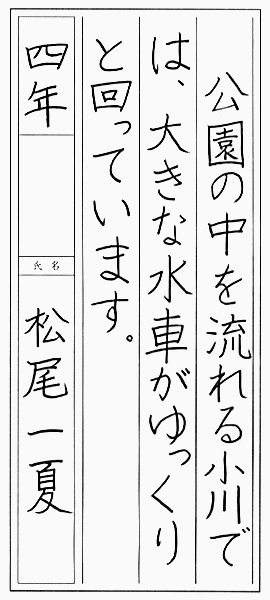 公園の中を流れる小川で
は、大きな水車がゆっくり
と回っています。
四年
氏名
松尾一夏